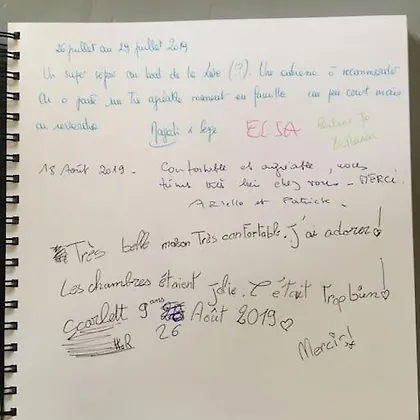 26 juillet au 29 juillet 2019
Un super séjour au bord de la Loire (?). Une adresse à recommander
On a passé un très agréable moment en famille un peu court mais
on reviendra Magali & Serge ELSA
18 Août 2019 - Confortable et agréable, nous
chez vous - MERCI
Arlette et Patrick.
Très belle maison Très confortable. j'ai adorer!
Les chambres étaient jolie. C'était trop bien!
Scarlett 9 ans 26 Août 2019 ♡
Mercis!